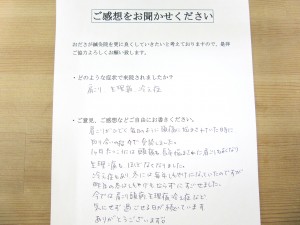 ご感想をお聞かせください
おださが鍼灸院を更に良くしていきたいと考えておりますので、是非
ご協力よろしくお願い致します。
・どのような症状で来院されましたか?
肩こり、生理痛、冷え症
・ご意見、ご感想などご自由にお書きください。
肩こりがひどく毎日のように頭痛に悩まされていた時に
知り合いの紹介で来院しました。
生理痛もほとんどなくなりました。
冷え症もあり冬には毎年しもやけになっていたのですが
昨年の冬はしもやけも知らずにすごせました。
今では肩こり頭痛生理痛冷え症など
気にせず過ごせる日が続いています
ありがとうございます